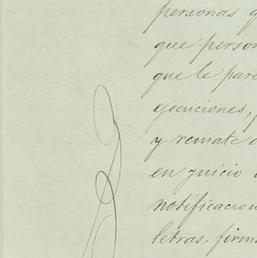 personas q
que person
que le pare
ejecuciones,
y remate d
en juicio
notificacion
letras, firm